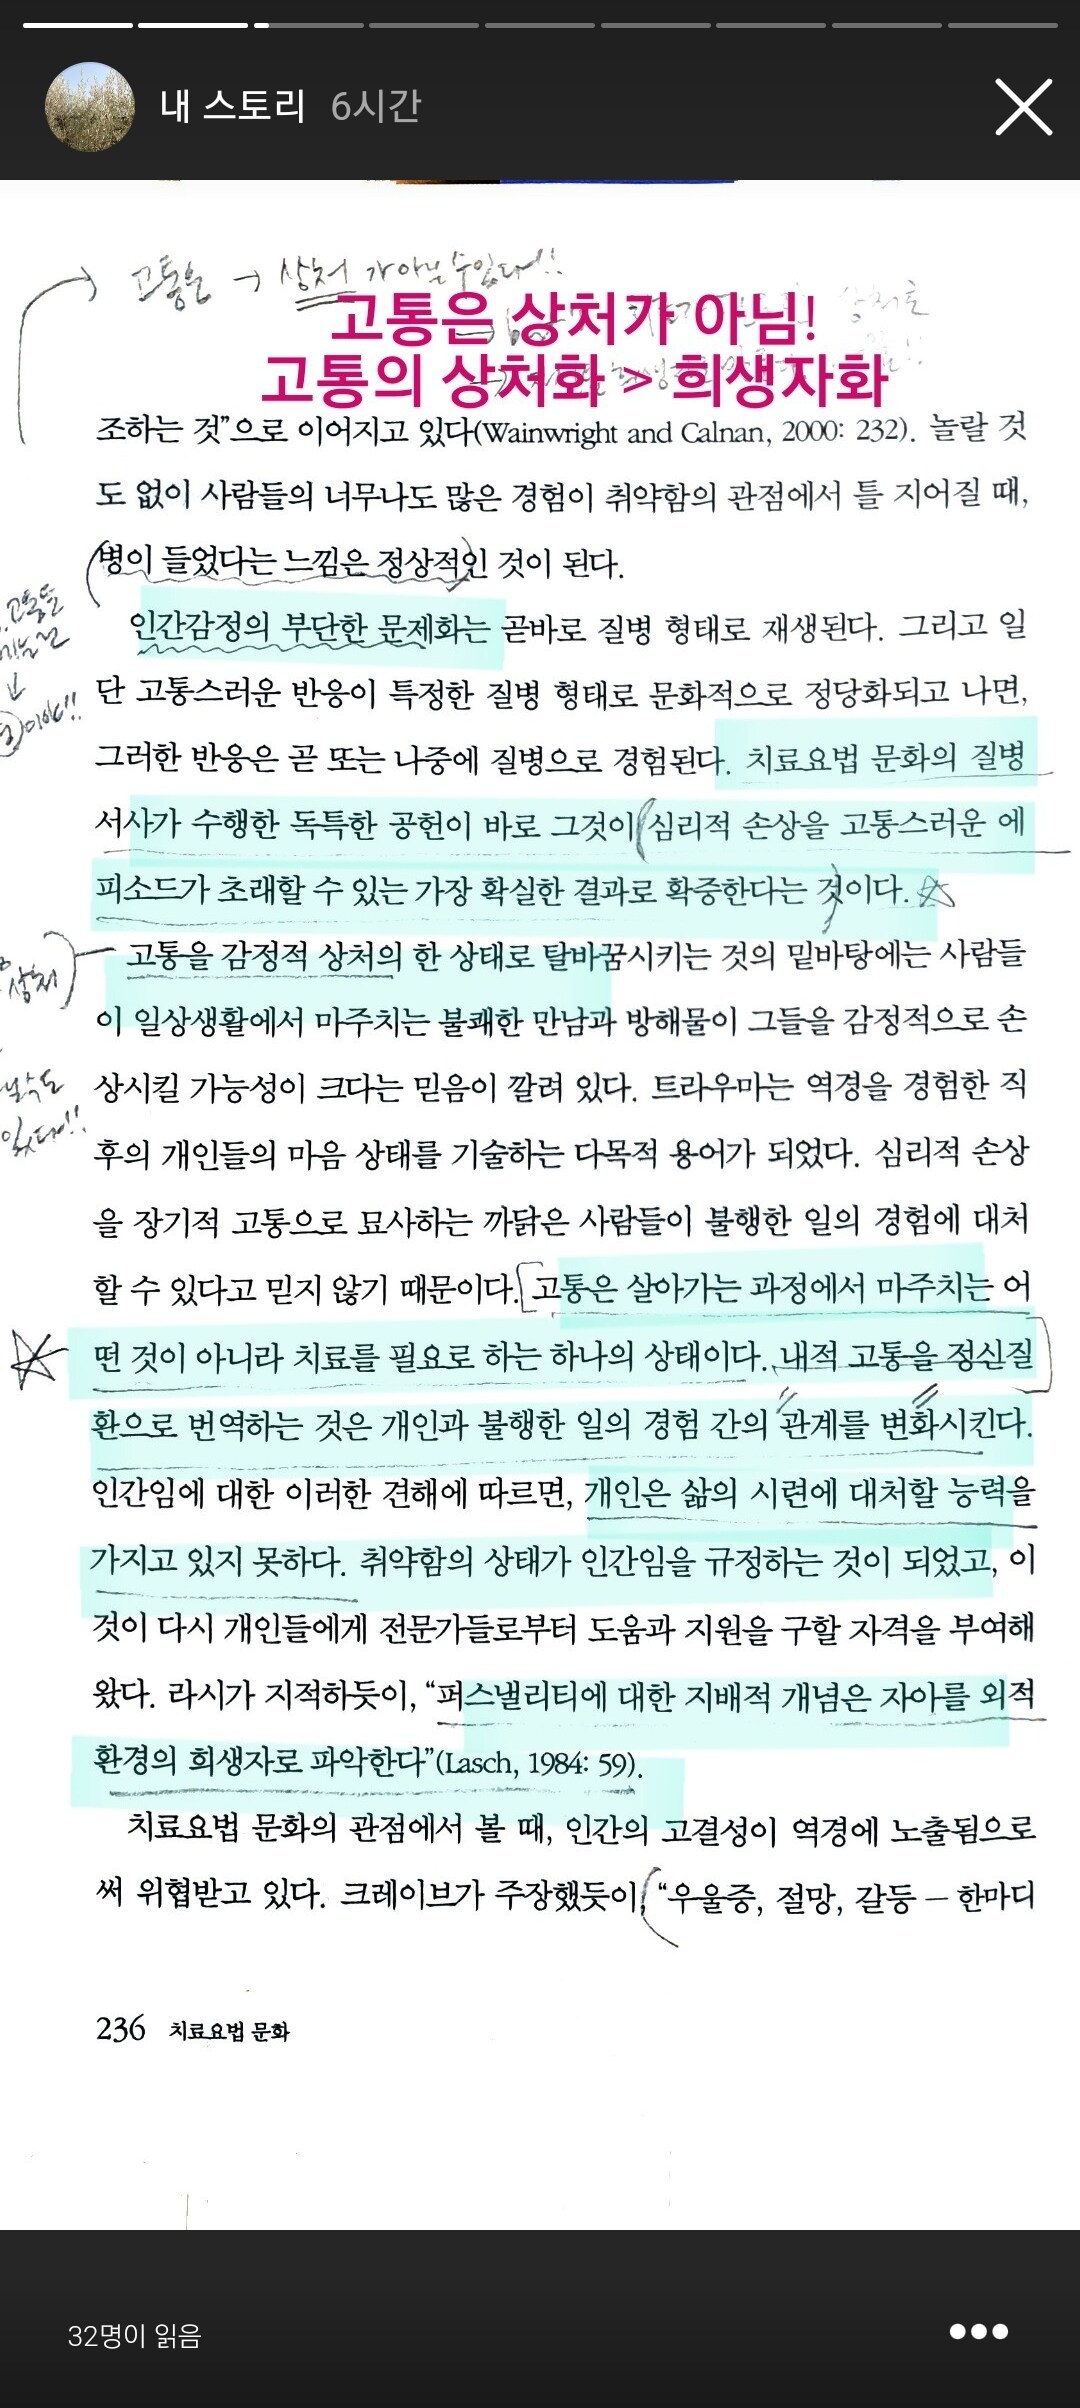 내 스토리 6시간
고통은 → 상처가 아닐 수 있다!!
고통은 상처가 아님!
고통의 상처화 > 희생자화
조하는 것”으로 이어지고 있다(Wainwright and Calnan, 2000: 232). 놀랄 것
도 없이 사람들의 너무나도 많은 경험이 취약함의 관점에서 틀 지어질 때,
병이 들었다는 느낌은 정상적인 것이 된다.
인간감정의 부단한 문제화는 곧바로 질병 형태로 재생된다. 그리고 일
단 고통스러운 반응이 특정한 질병 형태로 문화적으로 정당화되고 나면,
그러한 반응은 곧 또는 나중에 질병으로 경험된다. 치료요법 문화의 질병
서사가 수행한 독특한 공헌이 바로 그것이 심리적 손상을 고통스러운 에
피소드가 초래할 수 있는 가장 확실한 결과로 확증한다는 것이다.
고통을 감정적 상처의 한 상태로 탈바꿈시키는 것의 밑바탕에는 사람들
이 일상생활에서 마주치는 불쾌한 만남과 방해물이 그들을 감정적으로 손
상시킬 가능성이 크다는 믿음이 깔려 있다. 트라우마는 역경을 경험한 직
후의 개인들의 마음 상태를 기술하는 다목적 용어가 되었다. 심리적 손상
을 장기적 고통으로 묘사하는 까닭은 사람들이 불행한 일의 경험에 대처
할 수 있다고 믿지 않기 때문이다. 고통은 살아가는 과정에서 마주치는 어
떤 것이 아니라 치료를 필요로 하는 하나의 상태이다. 내적 고통을 정신질
환으로 번역하는 것은 개인과 불행한 일의 경험 간의 관계를 변화시킨다.
인간임에 대한 이러한 견해에 따르면, 개인은 삶의 시련에 대처할 능력을
가지고 있지 못하다. 취약함의 상태가 인간임을 규정하는 것이 되었고, 이
것이 다시 개인들에게 전문가들로부터 도움과 지원을 구할 자격을 부여해
왔다. 라시가 지적하듯이, “퍼스낼리티에 대한 지배적 개념은 자아를 외적
환경의 희생자로 파악한다”(Lasch, 1984: 59).
치료요법 문화의 관점에서 볼 때, 인간의 고결성이 역경에 노출됨으로
써 위협받고 있다. 크레이브가 주장했듯이, “우울증, 절망, 갈등 – 한마디
236 치료요법 문화
32명이 읽음